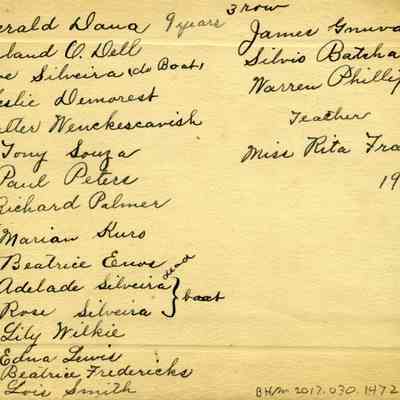 erald Dana 9 years
land O. Dell
e Silveira (de Boat)
eslie Demorest
lter Wenckescavish
Tony Souza
Paul Peters
Richard Palmer
Marian Kuro
Beatrice Enos
Adelade Silveira dead } boat
Rose Silveira
Lily Wilkie
Edna Lewis
Beatrice Fredericks
Lois Smith
3 row
James Gnuva
Silvio Batcha
Warren Phillip
Teacher
Miss Rita Fra
19
BHM 2017.030.1472